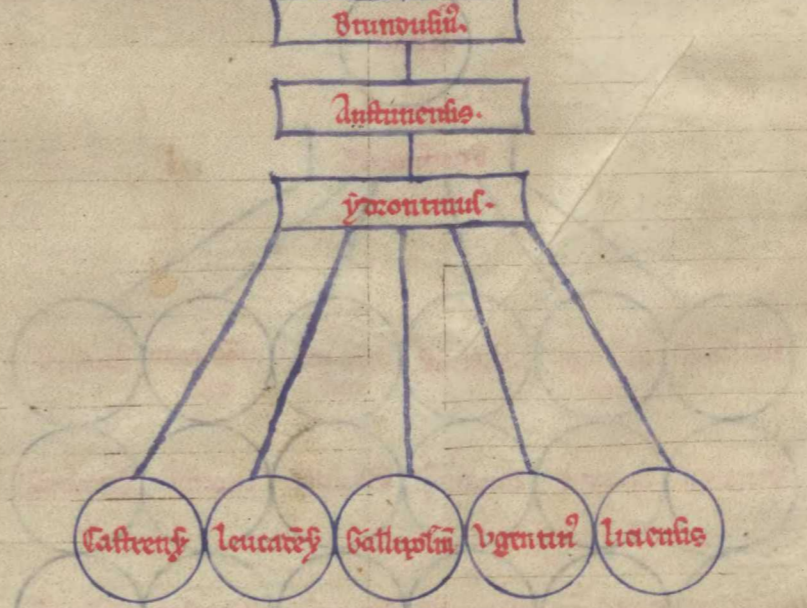 Brundusin⁹.
Astunensis.
ydrontinus.
Castrens̉
leucatēs̉
Gallipolin̄
Vgentin⁹
liciensis